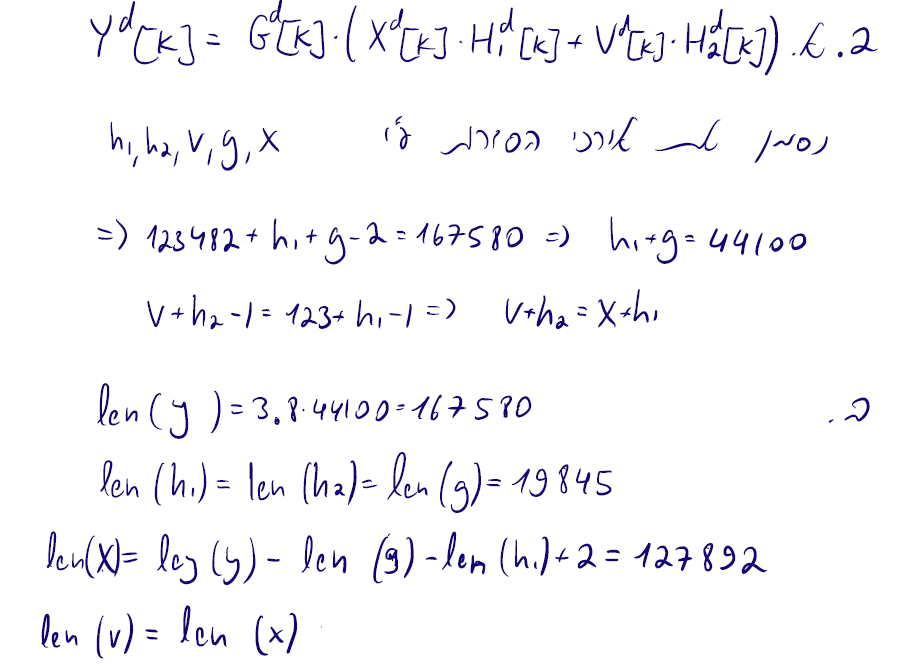 2. א. Y^d[k] = G^d[k]·(X^d[k]·H₁^d[k] + V^d[k]·H₂^d[k])
נסמן את אורכי הסדרות ע"י h₁, h₂, v, g, x
=> 123482 + h₁ + g - 2 = 167580 => h₁+g = 44100
v + h₂ - 1 = 123+ h₁ - 1 => v+h₂ = x+h₁
ב. len(y) = 3.8·44100 = 167580
len(h₁) = len(h₂) = len(g) = 19845
len(x) = leg(y) - len(g) - len(h₁) + 2 = 127892
len(v) = len(x)